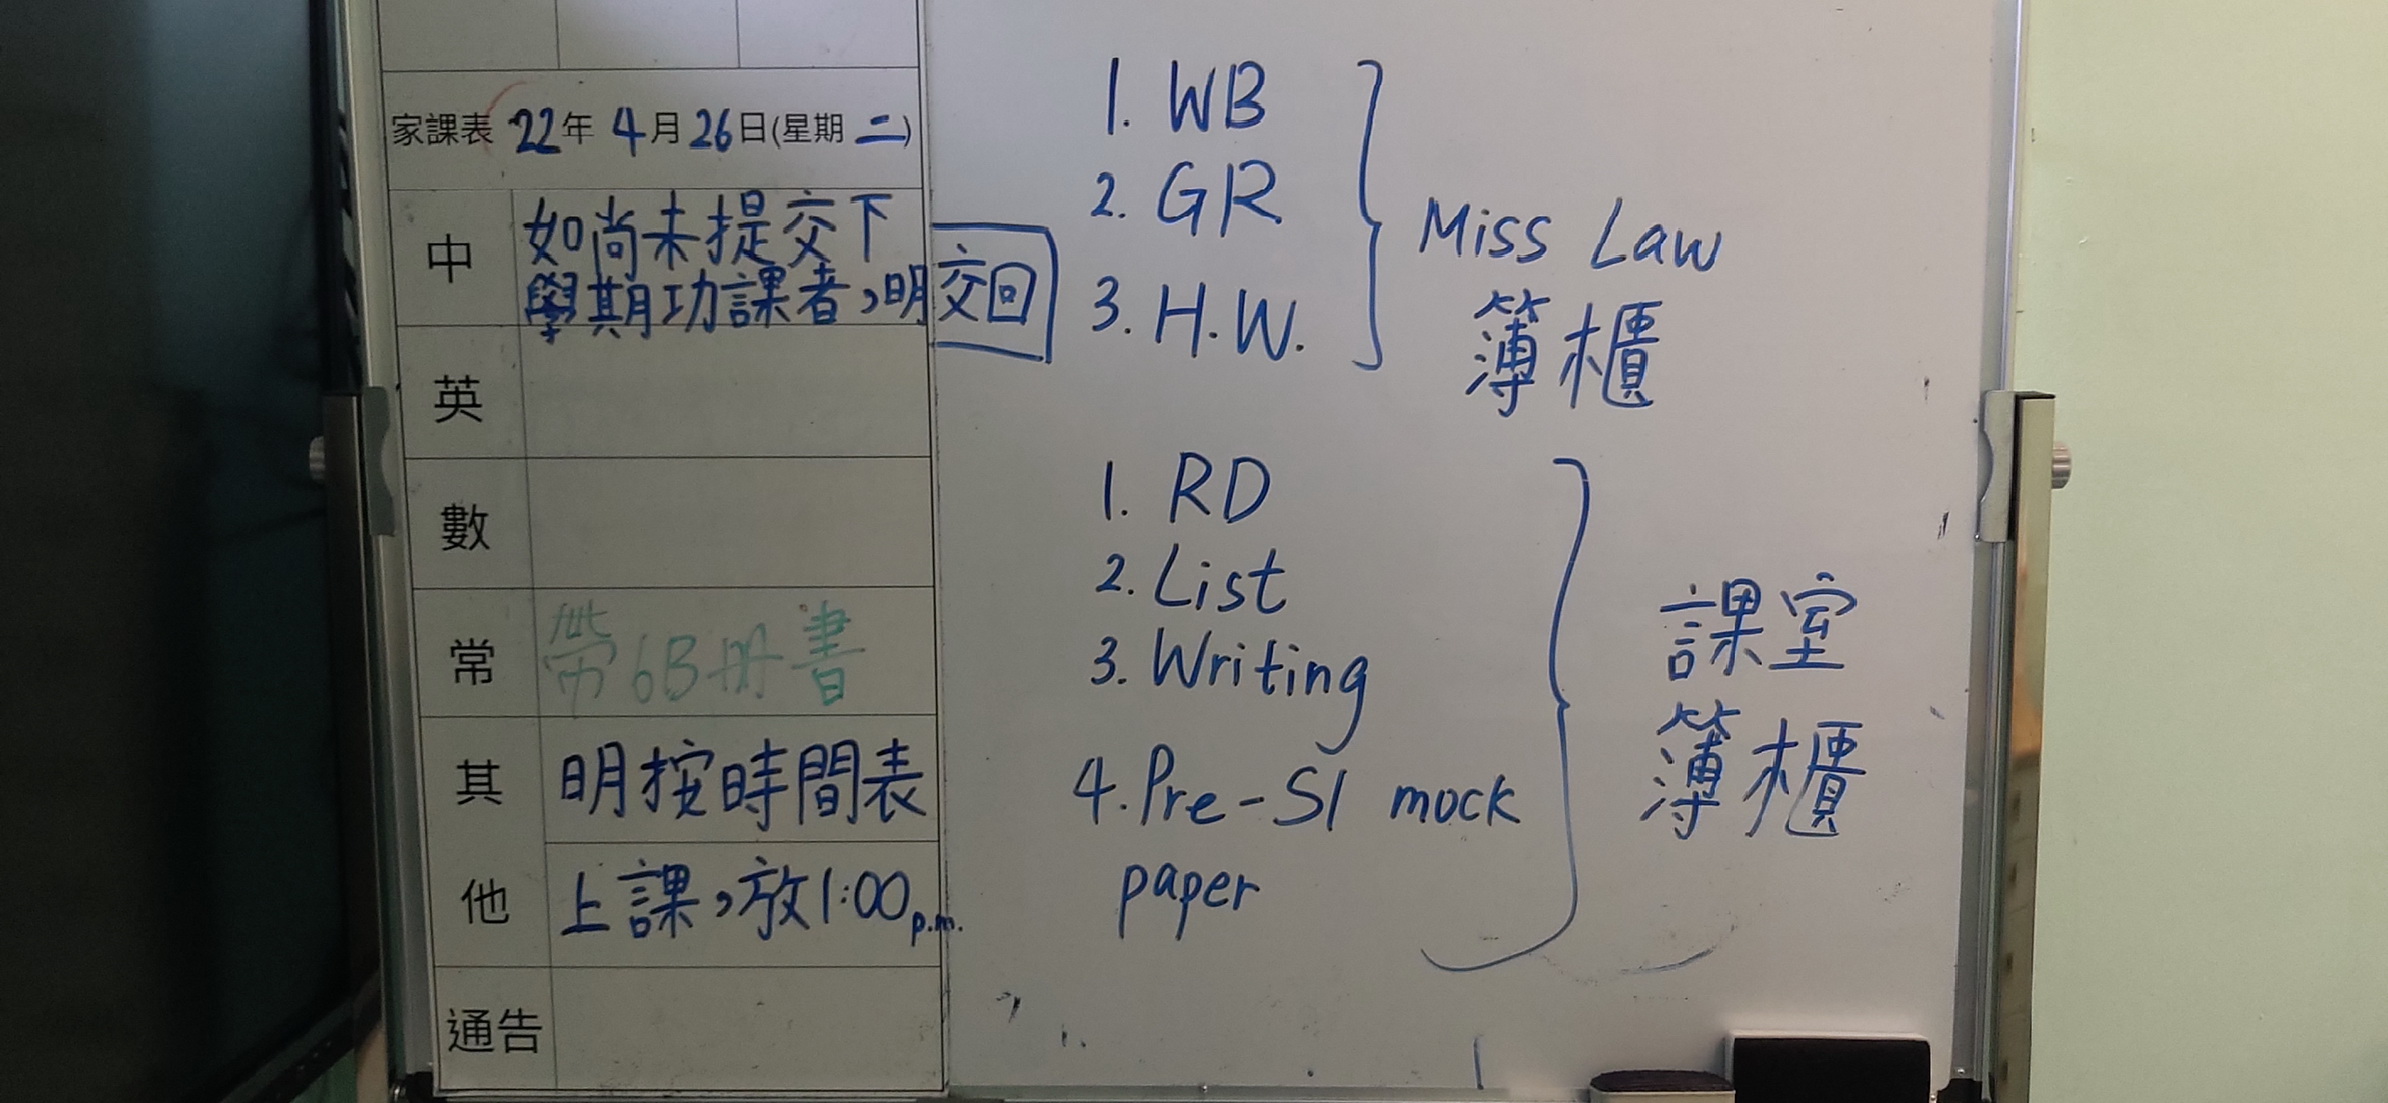 家課表 22年 4月26日(星期二)
中
如尚未提交下
學期功課者，明交回
英
數
常
帶6B册書
其
明按時間表
他
上課，放1:00p.m.
通告
1. WB
2. GR
3. H.W.
Miss Law
簿櫃
1. RD
2. List
3. Writing
4. Pre-S1 mock
paper
課室
簿櫃